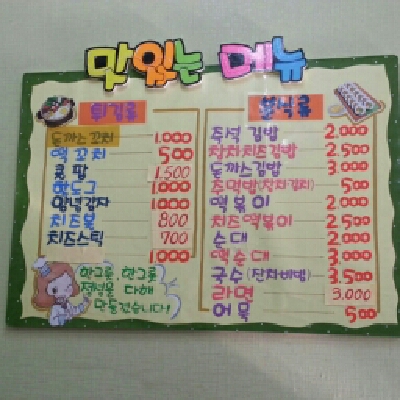 맛있는 메뉴
튀김류
돈까스꼬치 1,000
떡꼬치 500
콜팝 1,500
핫도그 1000
양념감자 1000
치즈볼 800
치즈스틱 700
1000
한그릇, 한그릇
정성을 다해
만들겠습니다!
분식류
추석 김밥 2,000
참치치즈김밥 2,500
돈까스김밥 3,000
주먹밥(참치김치) 500
떡볶이 2,000
치즈떡볶이 2,500
순대 2,000
떡순대 3,000
국수(잔치비빔) 3,500
라면 3,000
어묵 500